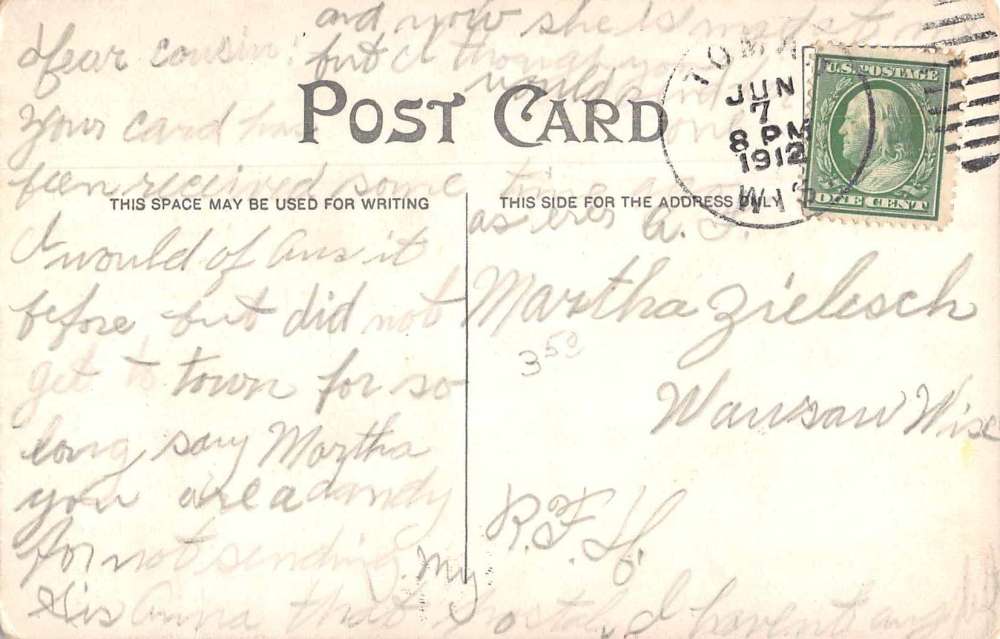 and now she is mad at me
but I though you
would send
one
POST CARD
TOMAH
JUN
7
8 PM
1912
WIS
U.S. POSTAGE
ONE CENT
THIS SPACE MAY BE USED FOR WRITING
THIS SIDE FOR THE ADDRESS ONLY
Dear cousin:
Your card has
been received some time ago
I would of ans it
before but did not
get to town for so
long say Martha
you are a dandy
for not sending My
Sis Anna that postal, I havent any
as ever A. Z.
Martha Zielesch
3 50
Wausau Wisc
R.F.